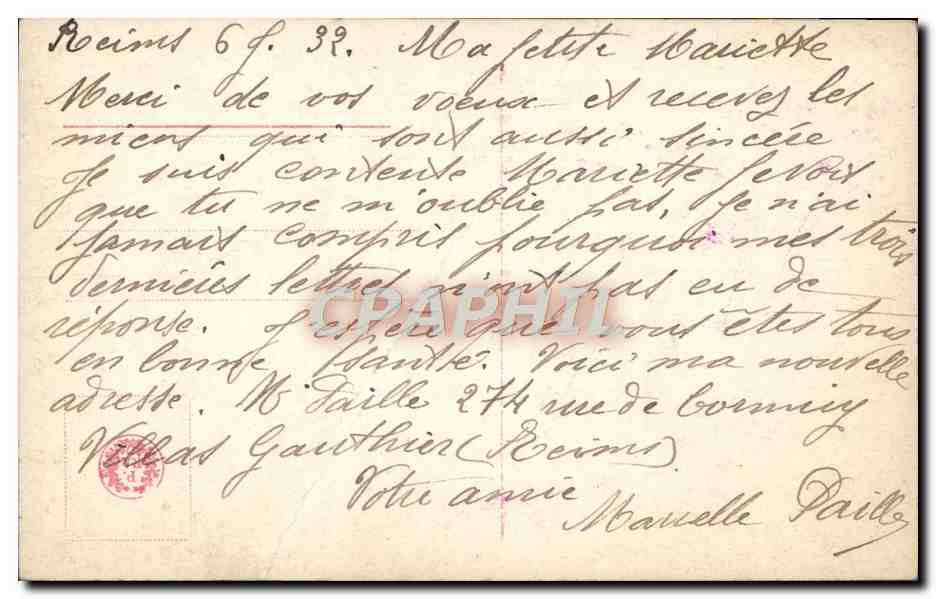 Reims 6 J. 32. Ma petite Mariette
Merci de vos voeux et recevez les
miens qui sont aussi sincère
Je suis contente Mariette je vois
que tu ne m'oublie pas, Je n'ai
jamais compris pourquoi mes trois
dernières lettres n'ont pas eu de
réponse. J'espère que vous êtes tous
en bonne santé. Voici ma nouvelle
adresse. Mr Paille 274 rue de Cormicy
Villas Gauthier (Reims)
Votre amie
Marcelle Paille
CPAPHIL